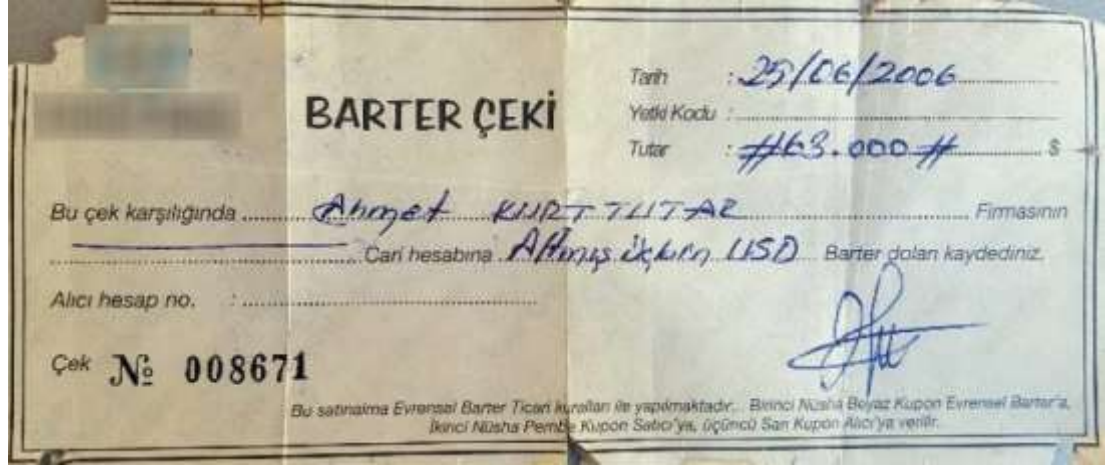 BARTER ÇEKİ
Tarih : 25/06/2006
Yetki Kodu :
Tutar : #63.000# $
Bu çek karşılığında Ahmet KURTTUTAR Firmasının
Cari hesabına Altmış üçbin USD Barter doları kaydediniz.
Alıcı hesap no. :
Çek № 008671
Bu satınalma Evrensel Barter Ticari kuralları ile yapılmaktadır. Birinci Nüsha Beyaz Kupon Evrensel Barter'a,
İkinci Nüsha Pembe Kupon Satıcı'ya, üçüncü Sarı Kupon Alıcı'ya verilir.